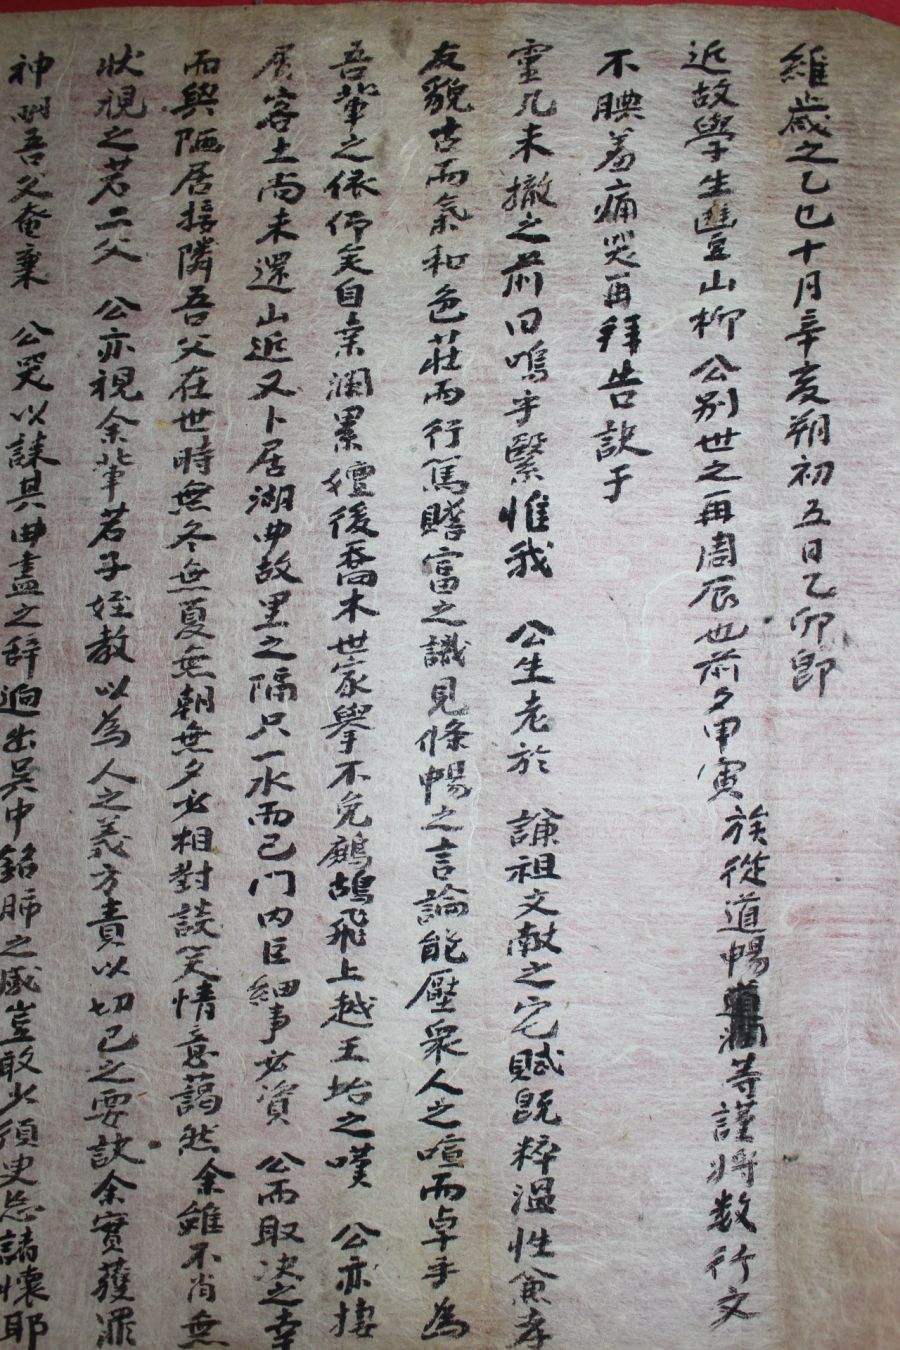 維歲之乙巳十月辛亥朔初五日乙卯卽
近故學生豐山柳 公別世之再周辰也前夕甲寅 族從道暢 等謹將數行文
不腆羞痛哭再拜告訣于
靈几未撤之前曰嗚乎緊惟我 公生老於 謙祖文獻之宅賦旣粹溫性 孝
友貌古而氣和色莊而行篤贍富之識見條暢之言論能壓衆人之喧而卓乎為
吾輩之依仰矣自桑瀾累嬗後喬木世家擧不免鷓鴣飛上越王坮之嘆 公亦棲
屑客土尚未還山近又卜居湖曲故里之隔只一水而已門內巨細事必資 公而取决之幸
而與陋居接隣吾父在世時無冬無夏無朝無夕必相對談笑情意藹然余雖不肖無
狀視之若二父 公亦視余輩若子姪教以為人之義方責以切己之要訣余實獲罪
神明吾父奄棄 公哭以誄其曲盡之辭逈出吳中銘肺之感豈敢少須臾忘諸懷耶